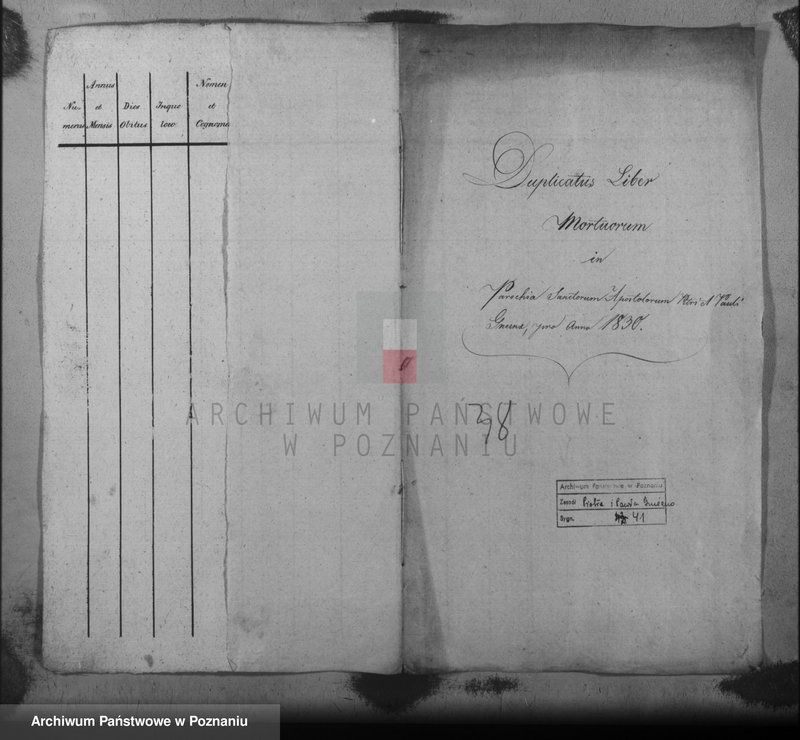 Annus
Nomen
Nu-
et
Dies
Inquo
et
merus
Mensis
Obitus
loco
Cognome
Duplicatus Liber
Mortuorum
in
Parochia Sanctorum Apostolorum Petri et Pauli
Gnesna, pro Anno 1830.
ARCHIWUM PAŃSTWOWE
W POZNANIU
38
Archiwum Państwowe w Poznaniu
Zespół Piotra i Pawła Gniezno
Sygn. 41
Archiwum Państwowe w Poznaniu